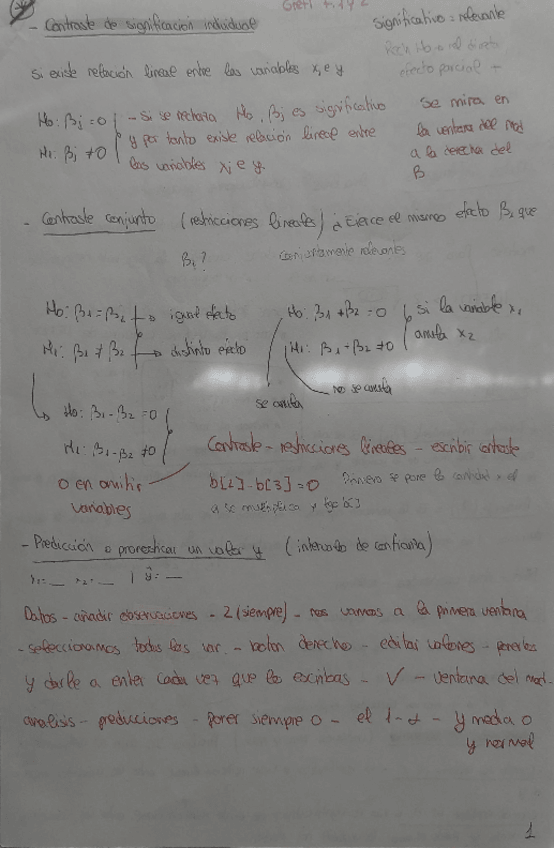 Gretl
- Contraste de significación individual
significativo = relevante
Si existe relación lineal entre las variables xj e y
efecto parcial
H0: βj = 0
H1: βj ≠ 0
- si se rechaza H0, βj es significativo
y por tanto existe relación lineal entre
las variables xj e y.
Se mira en
la ventana del mod
a la derecha del
β
- Contraste conjunto (restricciones lineales) ¿Ejerce el mismo efecto β2 que
β1?
conjuntamente relevantes
H0: β1 = β2 → igual efecto
H1: β1 ≠ β2 → distinto efecto
H0: β1 + β2 = 0
H1: β1 + β2 ≠ 0
si la variable x1
anula x2
se anula
no se anula
H0: β1 - β2 = 0
H1: β1 - β2 ≠ 0
o en omitir
variables
Contraste - restricciones lineales - escribir contraste
b[2] - b[3] = 0
Primero se pone la
- Predicción o pronosticar un valor y (intervalo de confianza)
x1= _ x2= _ / ŷ: _
Datos - añadir observaciones - 2 (siempre) - nos vamos a la primera ventana
- seleccionamos todas las var. - boton derecho - editar valores - ponerlos
y darle a enter cada vez que los escribas - ✓ - ventana del mod.
analisis - predicciones - poner siempre 0 - el 1-α - y media 0
y normal
1